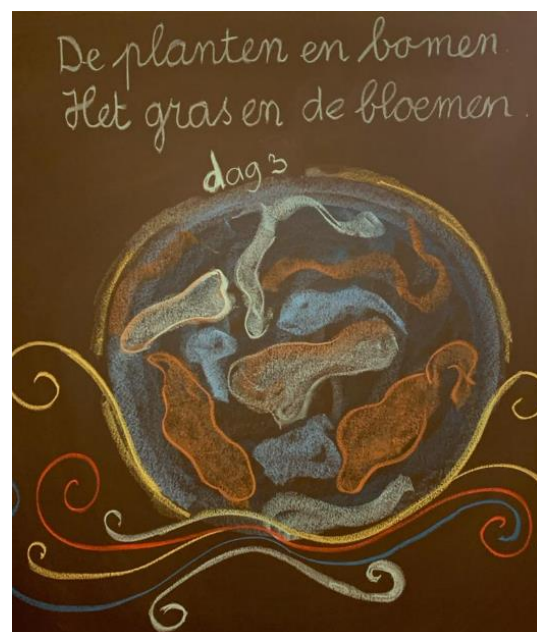 De planten en bomen.
Het gras en de bloemen.
dag 3